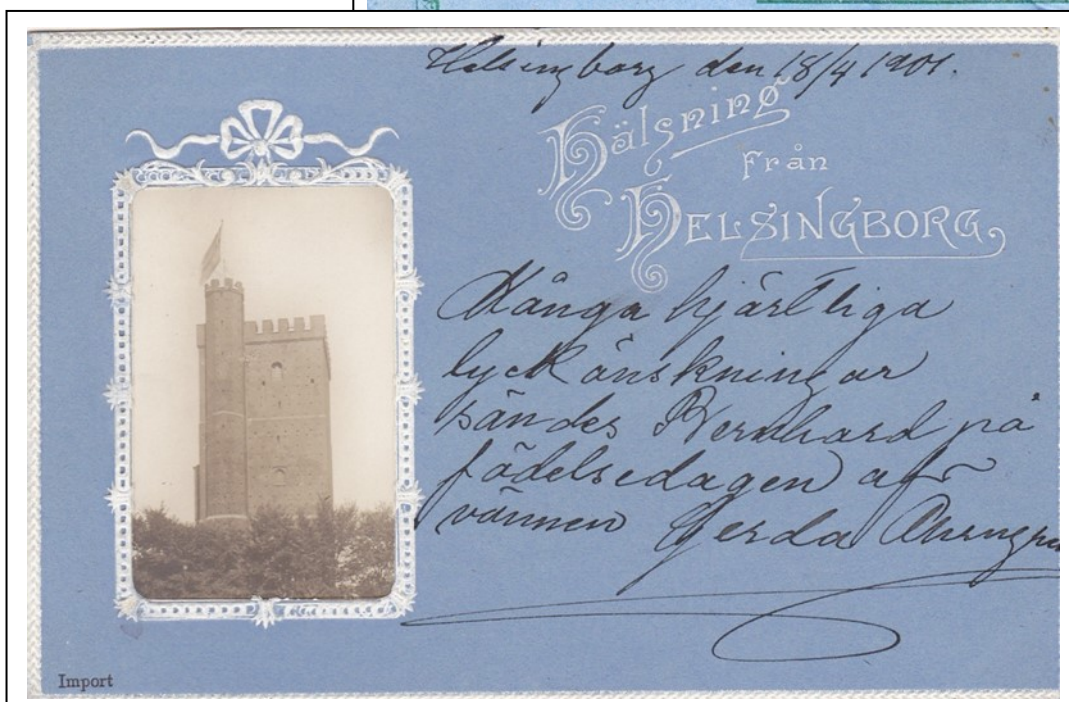 Helsingborg den 18/4 1901.
Hälsning
Från
HELSINGBORG,
Många hjärtliga
lyckönskningar
sändes Bernhard på
födelsedagen af
vännen Gerda
Import